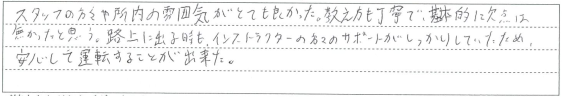 スタッフの方々や所内の雰囲気がとても良かった。教え方も丁寧で、基本的に欠点は
無かったと思う。路上に出る時も、インストラクターの方々のサポートがしっかりしていたため、
安心して運転することが出来た。